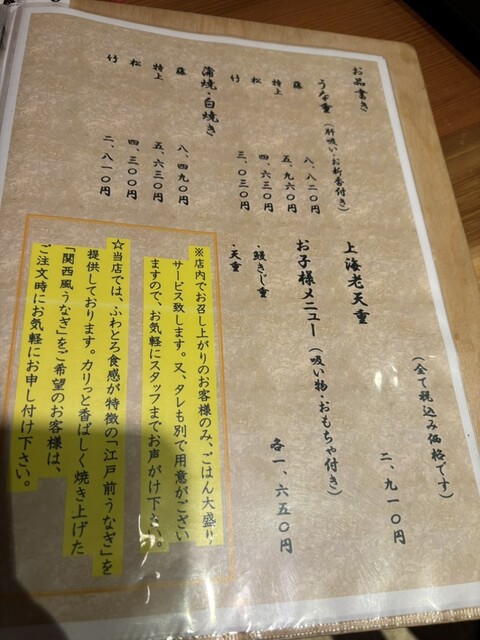 お品書き
うな重（肝吸い・お新香付き）
藤 八、八二〇円
特上 五、九六〇円
松 四、六三〇円
竹 三、〇三〇円
蒲焼・白焼き
藤 八、四九〇円
特上 五、六三〇円
松 四、三〇〇円
竹 二、八一〇円
（全て税込み価格です）
上海老天重 二、九一〇円
お子様メニュー（吸い物・おもちゃ付き）
・鰻きじ重
・天重
各一、六五〇円
※店内でお召し上がりのお客様のみ、ごはん大盛り
サービス致します。又、タレも別で用意がござい
ますので、お気軽にスタッフまでお声がけ下さい。
☆当店では、ふわとろ食感が特徴の「江戸前うなぎ」を
提供しております。カリっと香ばしく焼き上げた
「関西風うなぎ」をご希望のお客様は、
ご注文時にお気軽にお申し付け下さい。